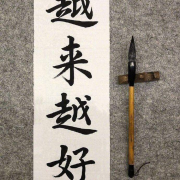 越来越好